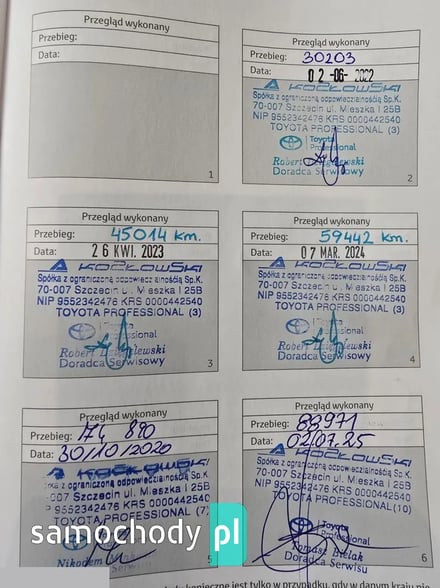 Przegląd wykonany
Przebieg:
Data:
1
Przegląd wykonany
Przebieg: 30203
Data: 02-06-2022
KOZŁOWSKI
Spółka z ograniczoną odpowiedzialnością Sp.K.
70-007 Szczecin ul. Mieszka I 25B
NIP 9552342476 KRS 0000442540
TOYOTA PROFESSIONAL (3)
Toyota
Professional
Robert
Doradca Serwisowy
2
Przegląd wykonany
Przebieg: 45014 km.
Data: 26 KWI. 2023
KOZŁOWSKI
Spółka z ograniczoną odpowiedzialnością Sp.K.
70-007 Szczecin ul. Mieszka I 25B
NIP 9552342476 KRS 0000442540
TOYOTA PROFESSIONAL (3)
Robert
Doradca Serwisowy
3
Przegląd wykonany
Przebieg: 59442 km.
Data: 07 MAR. 2024
KOZŁOWSKI
Spółka z ograniczoną odpowiedzialnością Sp.K.
70-007 Szczecin ul. Mieszka I 25B
NIP 9552342476 KRS 0000442540
TOYOTA PROFESSIONAL (3)
Robert
Doradca Serwisowy
4
Przegląd wykonany
Przebieg: 74 890
Data: 30/10/2020
KOZŁOWSKI
z ograniczoną odpowiedzialnością Sp.K.
-007 Szczecin ul. Mieszka I 25B
9552342476 KRS 0000442540
TOYOTA PROFESSIONAL (7)
Nikodem
5
Przegląd wykonany
Przebieg: 89971
Data: 02/07.25
KOZŁOWSKI
Spółka z ograniczoną odpowiedzialnością Sp.K.
70-007 Szczecin ul. Mieszka I 25B
NIP 9552342476 KRS 0000442540
TOYOTA PROFESSIONAL (10)
Toyota
Professional
Tomasz Bielak
Doradca Serwisu
6
samochody pl
konieczne jest tylko w przypadku, gdy w danym kraju nie